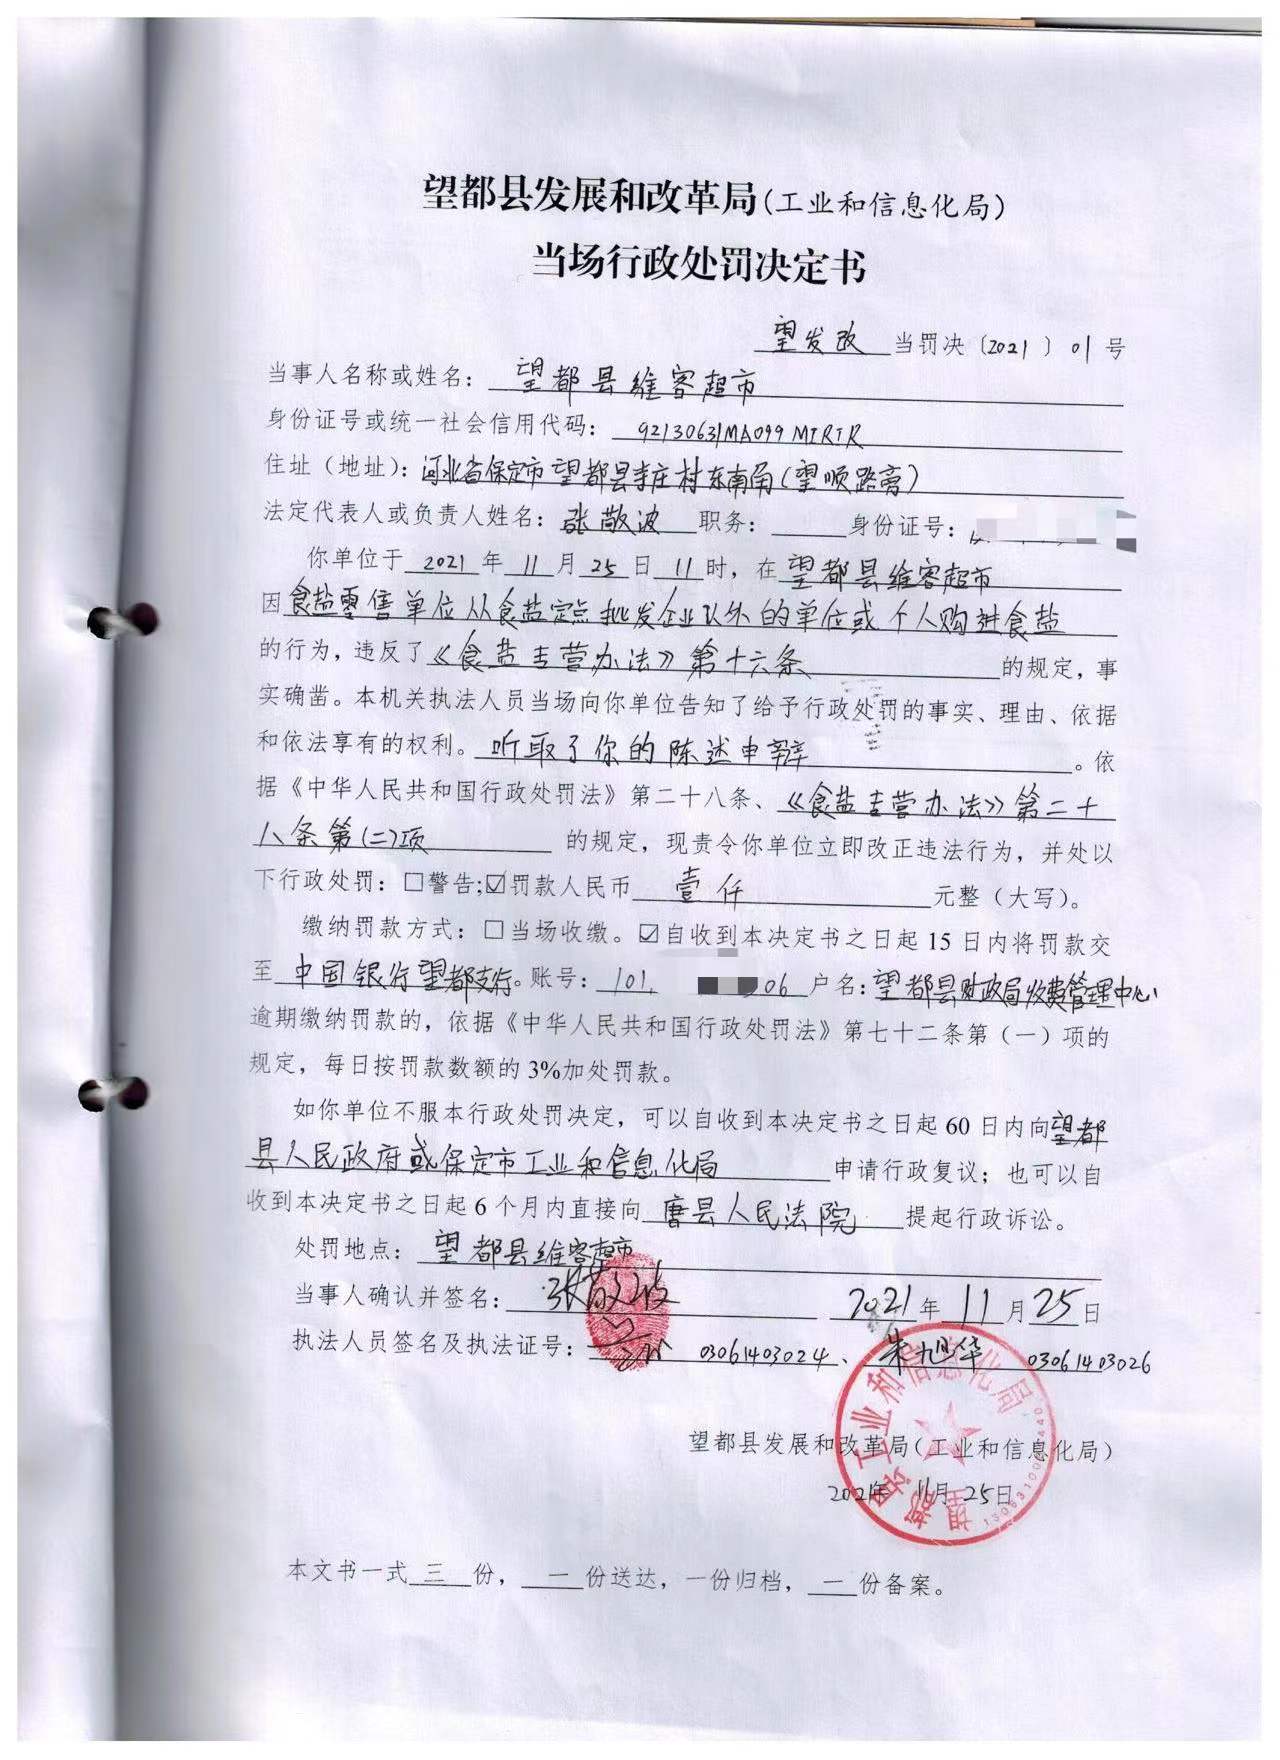 望都县发展和改革局(工业和信息化局)
当场行政处罚决定书
望发改 当罚决〔2021〕01号
当事人名称或姓名：望都县维客超市
身份证号或统一社会信用代码：92130631MA099MTRTR
住址（地址）：河北省保定市望都县李庄村东南角(望顺路旁)
法定代表人或负责人姓名：张敬波 职务： 身份证号：
你单位于2021年11月25日11时，在望都县维客超市
因食盐零售单位从食盐定点批发企业以外的单位或个人购进食盐
的行为，违反了《食盐专营办法》第十六条 的规定，事
实确凿。本机关执法人员当场向你单位告知了给予行政处罚的事实、理由、依据
和依法享有的权利。听取了你的陈述申辩。依
据《中华人民共和国行政处罚法》第二十八条、《食盐专营办法》第二十
八条第(二)项 的规定，现责令你单位立即改正违法行为，并处以
下行政处罚：□警告;☑罚款人民币 壹仟 元整（大写）。
缴纳罚款方式：□当场收缴。☑自收到本决定书之日起15日内将罚款交
至中国银行望都支行。账号：101 06 户名：望都县财政局收费管理中心
逾期缴纳罚款的，依据《中华人民共和国行政处罚法》第七十二条第（一）项的
规定，每日按罚款数额的3%加处罚款。
如你单位不服本行政处罚决定，可以自收到本决定书之日起60日内向望都
县人民政府或保定市工业和信息化局 申请行政复议；也可以自
收到本决定书之日起6个月内直接向 唐县人民法院 提起行政诉讼。
处罚地点：望都县维客超市
当事人确认并签名：张敬波 2021年11月25日
执法人员签名及执法证号： 03061403024、朱旭华 03061403026
望都县发展和改革局（工业和信息化局）
2021年11月25日
本文书一式三份，一份送达，一份归档，一份备案。